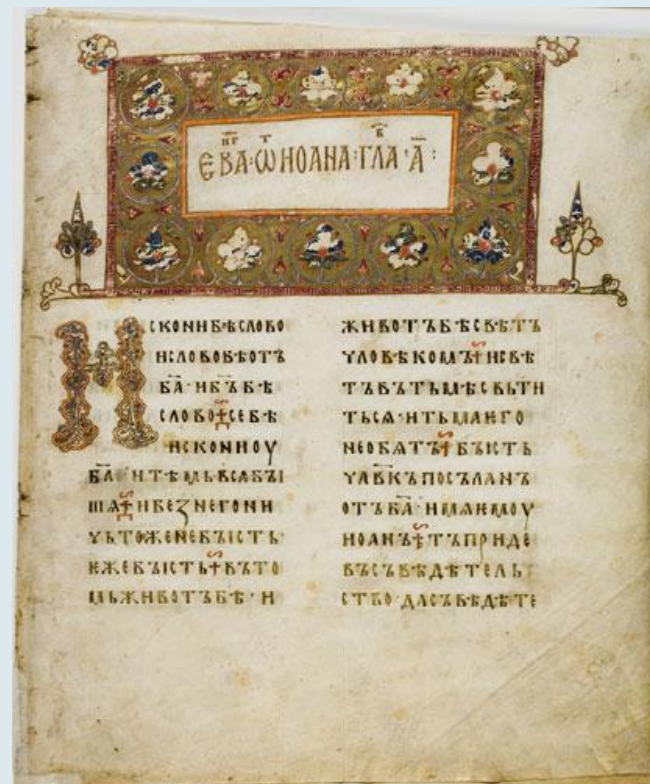 ЕВА҃НГ · ѾТ ИОАНА · ГЛАВ · А҃ :
ИСКОНИ БѢ СЛОВО
И СЛОВО БѢ ОТЪ
БА҃ · И БЪ҃ БѢ
СЛОВО СЕ БѢ
ИСКОНИ ОУ
БА҃ И ТѢМЬ ВСЯ БЫ
ША И БЕЗ НЕГО НИ
ЧЬТОЖЕ НЕ БЫСТЬ ·
ЕЖЕ БЫСТЬ ВЪ ТО
МЬ ЖИВОТЪ БѢ · И
ЖИВОТЪ БѢ СВѢТЪ
ЧЛОВѢКОМЪ И СВѢ
ТЪ ВЪ ТЬМѢ СВЬТИ
ТЬСѦ · И ТЬМА ЕГО
НЕ ОБѦТЪ БЫСТЬ
ЧЛ҃ВКЪ ПОСЪЛАНЪ
ОТЪ БА҃ · ИМѦ ЕМОУ
ИОАНЪ ТЪ ПРИДЕ
ВЪ СЪВѢДѢТЕЛЬ
СТВО · ДА СЪВѢДѢТЕ